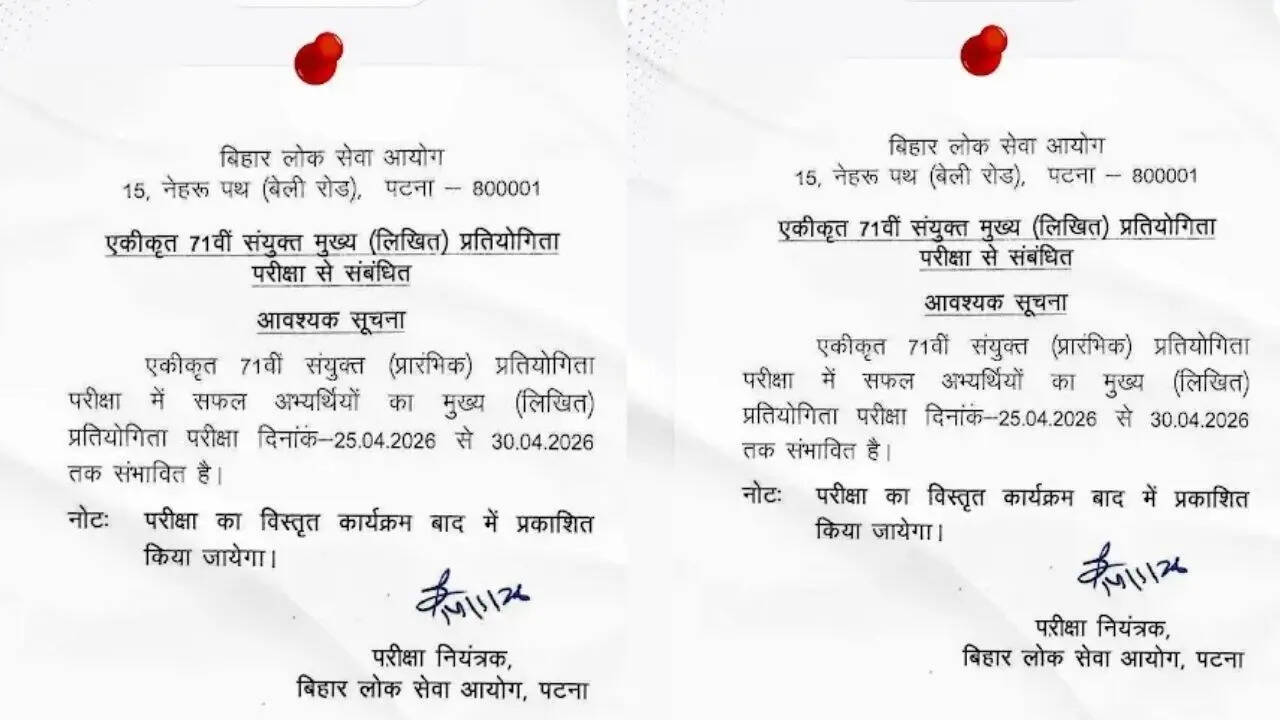 बिहार लोक सेवा आयोग
15, नेहरू पथ (बेली रोड), पटना – 800001
एकीकृत 71वीं संयुक्त मुख्य (लिखित) प्रतियोगिता
परीक्षा से संबंधित
आवश्यक सूचना
एकीकृत 71वीं संयुक्त (प्रारंभिक) प्रतियोगिता
परीक्षा में सफल अभ्यर्थियों का मुख्य (लिखित)
प्रतियोगिता परीक्षा दिनांक–25.04.2026 से 30.04.2026
तक संभावित है।
नोटः परीक्षा का विस्तृत कार्यक्रम बाद में प्रकाशित
किया जायेगा।
परीक्षा नियंत्रक,
बिहार लोक सेवा आयोग, पटना
बिहार लोक सेवा आयोग
15, नेहरू पथ (बेली रोड), पटना – 800001
एकीकृत 71वीं संयुक्त मुख्य (लिखित) प्रतियोगिता
परीक्षा से संबंधित
आवश्यक सूचना
एकीकृत 71वीं संयुक्त (प्रारंभिक) प्रतियोगिता
परीक्षा में सफल अभ्यर्थियों का मुख्य (लिखित)
प्रतियोगिता परीक्षा दिनांक–25.04.2026 से 30.04.2026
तक संभावित है।
नोटः परीक्षा का विस्तृत कार्यक्रम बाद में प्रकाशित
किया जायेगा।
परीक्षा नियंत्रक,
बिहार लोक सेवा आयोग, पटना